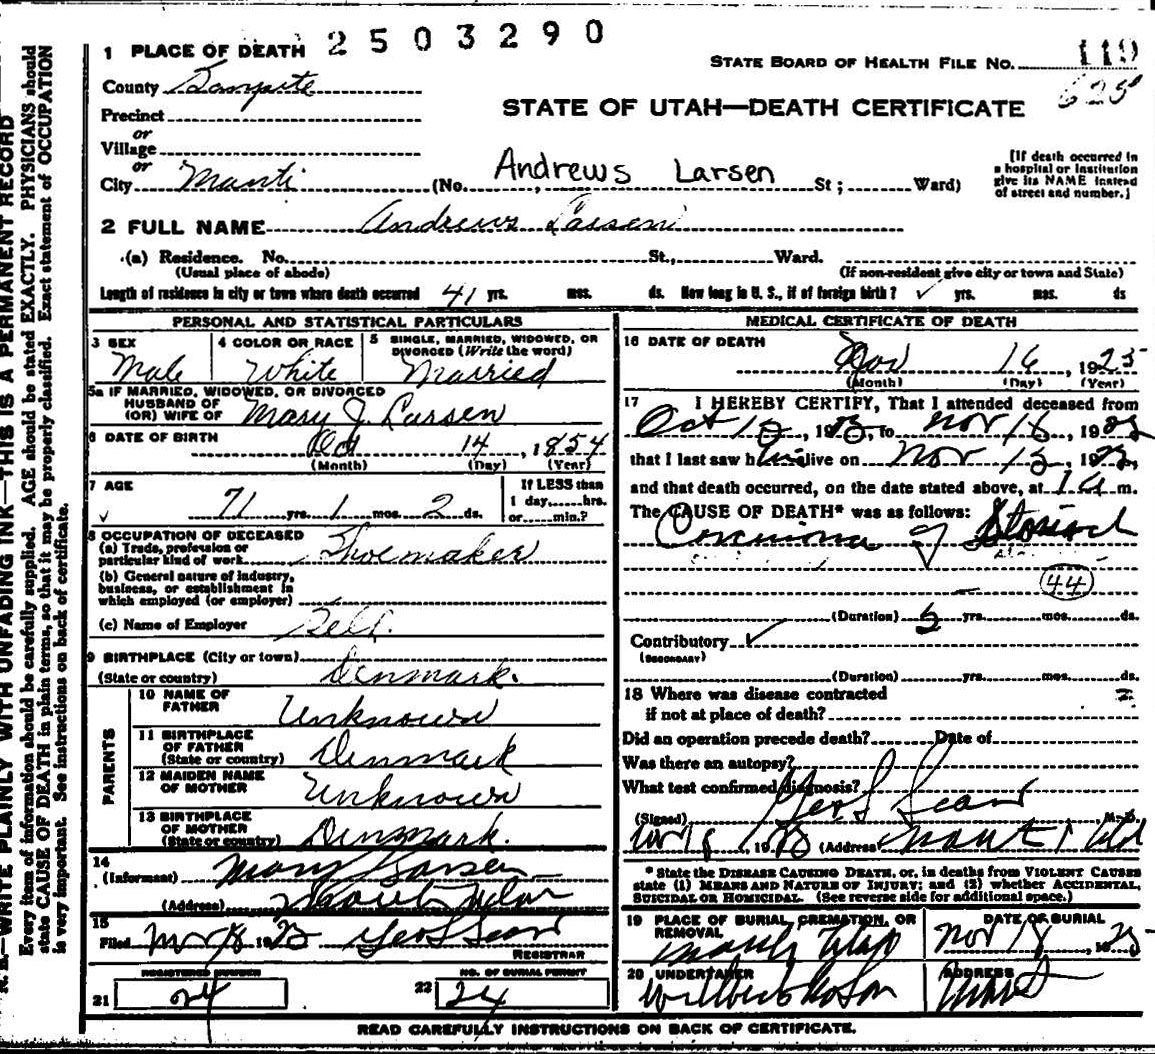 2503290
1 PLACE OF DEATH
STATE BOARD OF HEALTH FILE NO. 119
625
County Sanpete
STATE OF UTAH—DEATH CERTIFICATE
Precinct
or
Village
or
City Manti (No. Andrews Larsen St; Ward)
[If death occurred in
a hospital or institution
give its NAME instead
of street and number.]
2 FULL NAME Andrews Larsen
(a) Residence. No. St., Ward.
(Usual place of abode) (If non-resident give city or town and State)
Length of residence in city or town where death occurred 41 yrs. mos. ds. How long in U. S., if of foreign birth? ✓ yrs. mos. ds
PERSONAL AND STATISTICAL PARTICULARS
3 SEX
Male
4 COLOR OR RACE
White
5 SINGLE, MARRIED, WIDOWED, OR
DIVORCED (Write the word)
Married
5a IF MARRIED, WIDOWED, OR DIVORCED
HUSBAND OF
(OR) WIFE OF Mary J. Larsen
6 DATE OF BIRTH Oct 14, 1854
(Month) (Day) (Year)
7 AGE
✓ 71 yrs. 1 mos. 2 ds.
If LESS than
1 day,......hrs.
or......min.?
8 OCCUPATION OF DECEASED
(a) Trade, profession or
particular kind of work Shoemaker
(b) General nature of industry,
business, or establishment in
which employed (or employer)
(c) Name of Employer Self.
9 BIRTHPLACE (City or town)
(State or country) Denmark.
PARENTS
10 NAME OF
FATHER Unknown
11 BIRTHPLACE
OF FATHER
(State or country) Denmark
12 MAIDEN NAME
OF MOTHER Unknown
13 BIRTHPLACE
OF MOTHER
(State or country) Denmark.
14
(Informant) Mary Larsen
(Address) Manti Utah
15
Filed Nov 18 1925
REGISTRAR
REGISTERED NUMBER
21 24
NO. OF BURIAL PERMIT
22 24
MEDICAL CERTIFICATE OF DEATH
16 DATE OF DEATH
Nov 16, 1925
(Month) (Day) (Year)
17 I HEREBY CERTIFY, That I attended deceased from
Oct 15, 1925, to Nov 16, 1925
that I last saw him alive on Nov 15, 1925,
and that death occurred, on the date stated above, at m.
The CAUSE OF DEATH* was as follows:
Carcinoma of Stomach
44
(Duration) 5 yrs. mos. ds.
Contributory ✓
(SECONDARY)
(Duration) yrs. mos. ds.
18 Where was disease contracted
if not at place of death?
Did an operation precede death? Date of
Was there an autopsy?
What test confirmed diagnosis?
(Signed) M. D.
Nov 18, 1925 (Address Manti Utah
* State the DISEASE CAUSING DEATH, or, in deaths from VIOLENT CAUSES
state (1) MEANS AND NATURE OF INJURY; and (2) whether ACCIDENTAL,
SUICIDAL OR HOMICIDAL. (See reverse side for additional space.)
19 PLACE OF BURIAL, CREMATION, OR
REMOVAL
Manti Utah
DATE OF BURIAL
Nov 18, 1925
20 UNDERTAKER
ADDRESS
Manti
READ CAREFULLY INSTRUCTIONS ON BACK OF CERTIFICATE.
N. B.—WRITE PLAINLY WITH UNFADING INK—THIS IS A PERMANENT RECORD
Every item of information should be carefully supplied. AGE should be stated EXACTLY. PHYSICIANS should
state CAUSE OF DEATH in plain terms, so that it may be properly classified. Exact statement of OCCUPATION
is very important. See instructions on back of certificate.